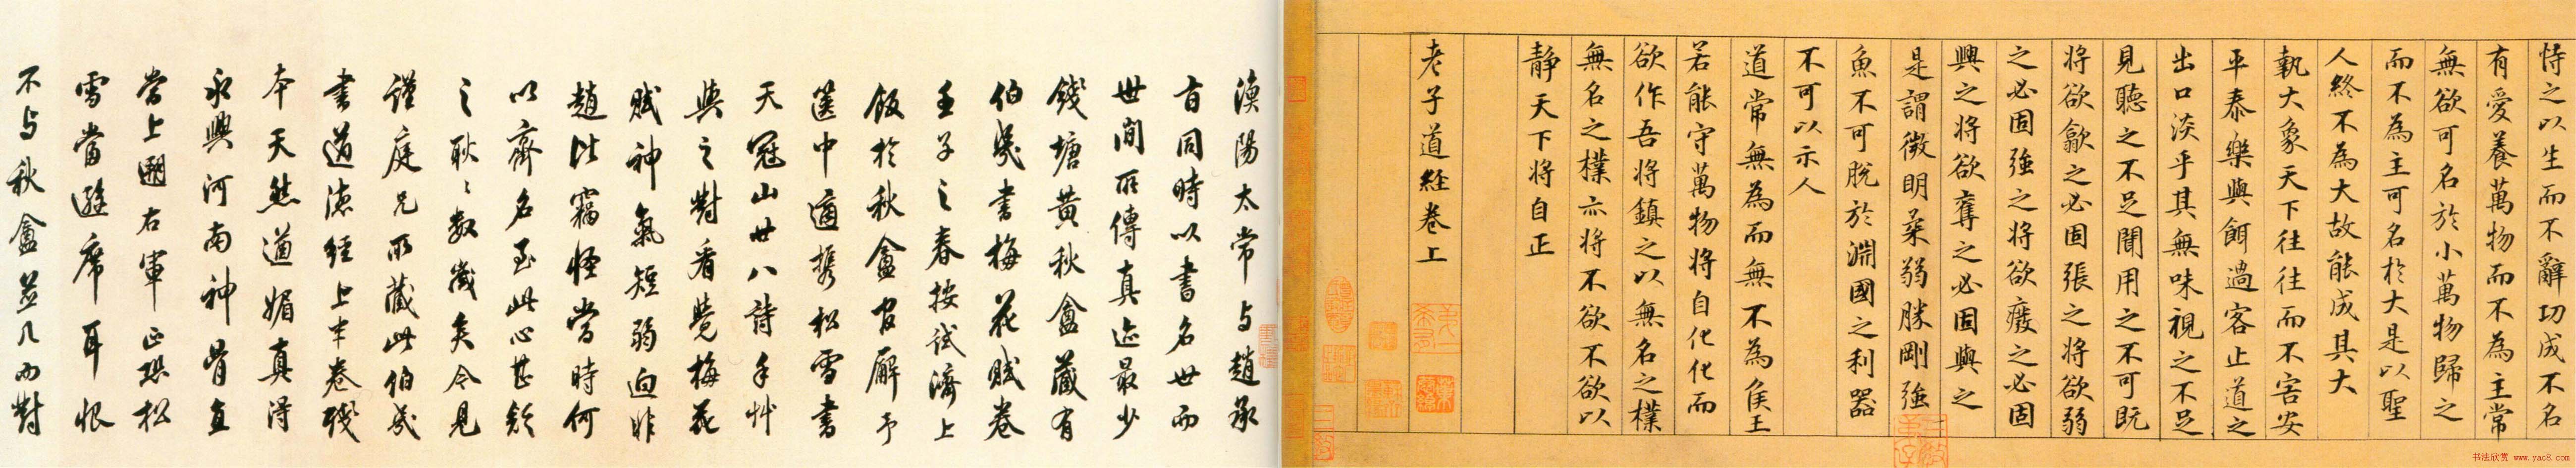 恃之以生而不辭功成不名
有愛養萬物而不為主常
無欲可名於小萬物歸之
而不為主可名於大是以聖
人終不為大故能成其大
執大象天下往往而不害安
平泰樂與餌過客止道之
出口淡乎其無味視之不足
見聽之不足聞用之不可既
將欲歙之必固張之將欲弱
之必固強之將欲廢之必固
興之將欲奪之必固與之
是謂微明柔弱勝剛強
魚不可脫於淵國之利器
不可以示人
道常無為而無不為侯王
若能守萬物將自化化而
欲作吾將鎮之以無名之樸
無名之樸亦將不欲不欲以
靜天下將自正
老子道經卷上
漁陽太常与趙承
旨同時以書名世而
世間所傳真迹最少
錢塘黃秋盦藏有
伯幾書梅花賦卷
壬子之春按試濟上
飯於秋盦官廨予
篋中適攜松雪書
天冠山廿八詩手艸
與之對看覺梅花
賦神氣短弱迥非
趙比竊怪當時何
以齊名至此心甚
之耿〻數歲矣今見
謹庭兄所藏此伯幾
書道德經上半卷殘
本天然遒媚真得
永興河南神骨直
當上溯右軍正恐松
雪當避席耳恨
不与秋盦並几而對
书法欣赏 www.yac8.com